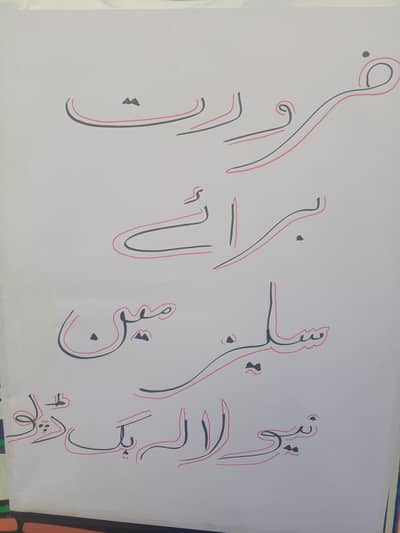 ضرورت
برائے
سلیز مین
نیو لالہ بک ڈپو